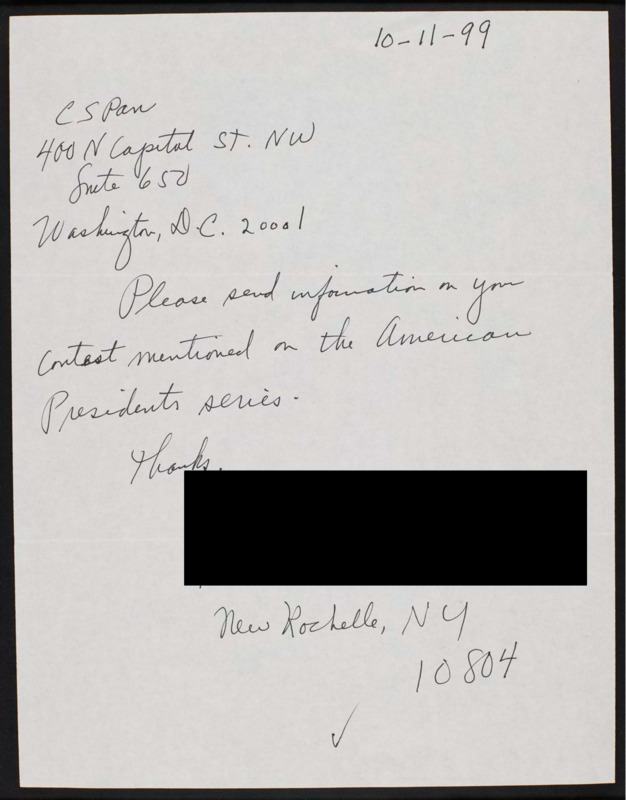 10-11-99
C S Pan
400 N Capital St. NW
Suite 650
Washington, D.C. 20001
Please send information on your
contest mentioned on the American
Presidents series.
Thanks.
New Rochelle, NY
10804